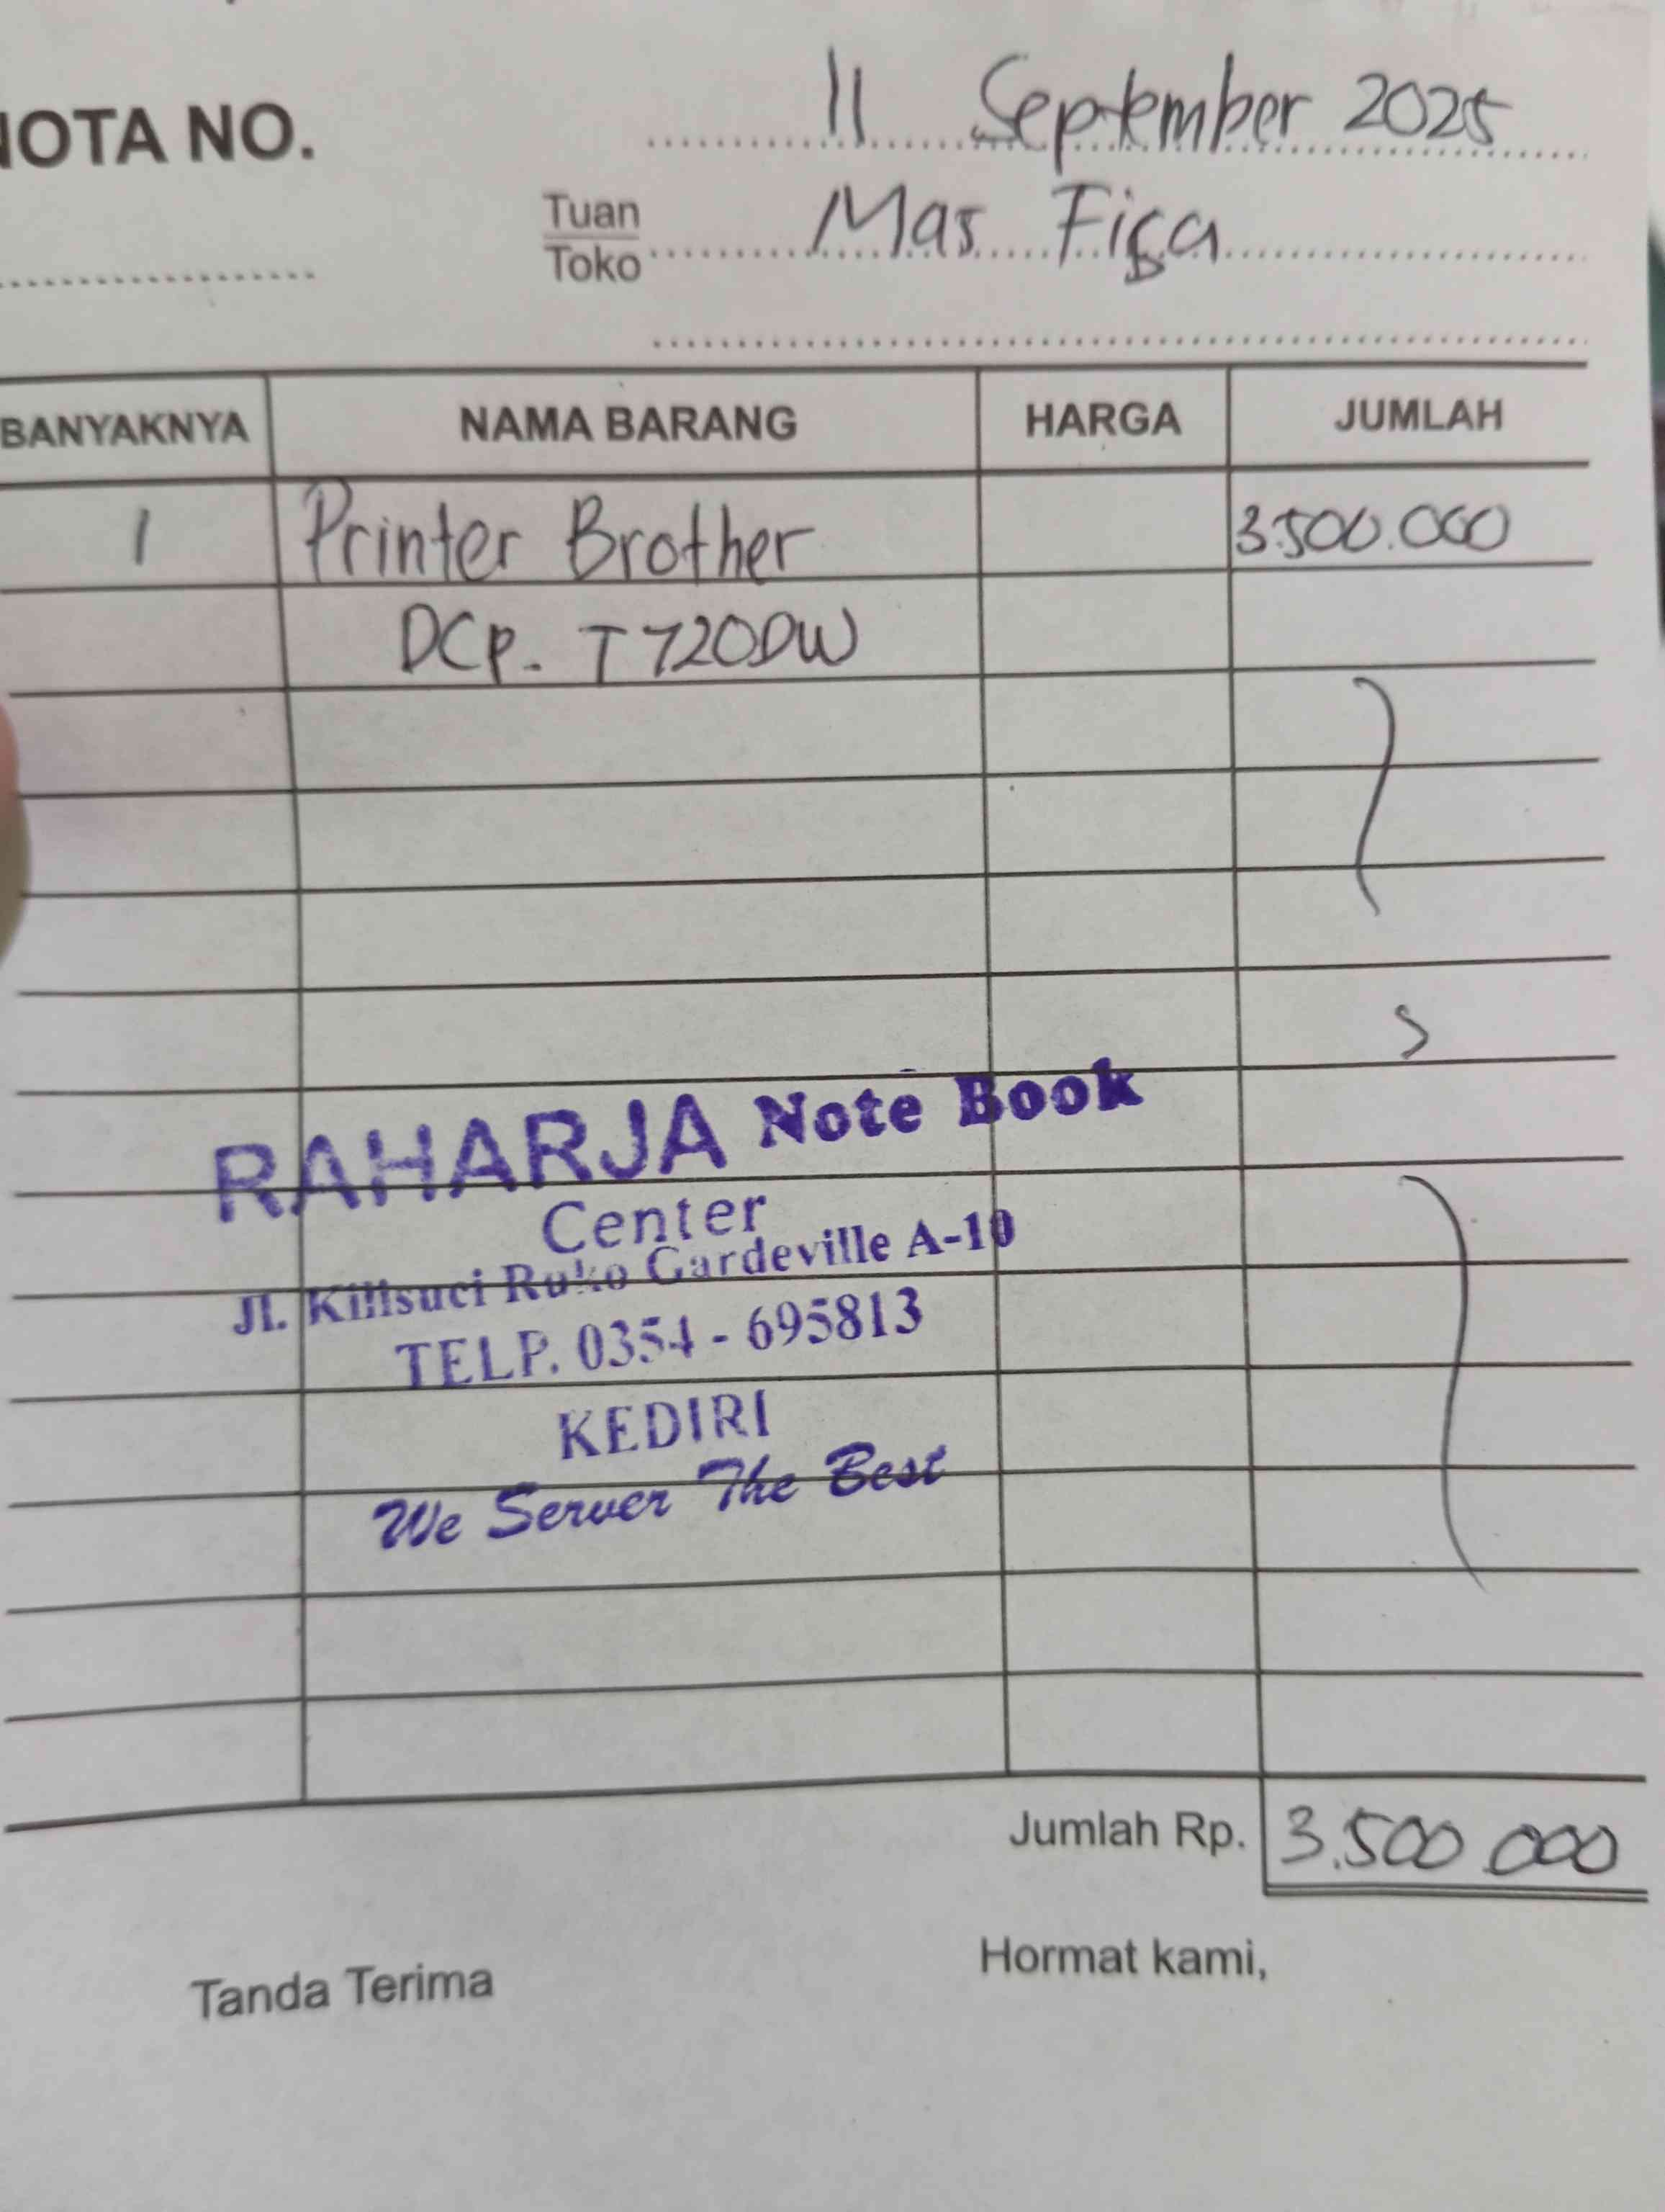 NOTA NO.
11 September 2025
Tuan
Toko
Mas
BANYAKNYA NAMA BARANG HARGA JUMLAH
1 Printer Brother 3.500.000
DCP. T720DW
RAHARJA Note Book
Center
Jl. Killsuci Ruko Gardeville A-10
TELP. 0354 - 695813
KEDIRI
We Server The Best
Jumlah Rp. 3.500.000
Tanda Terima Hormat kami,